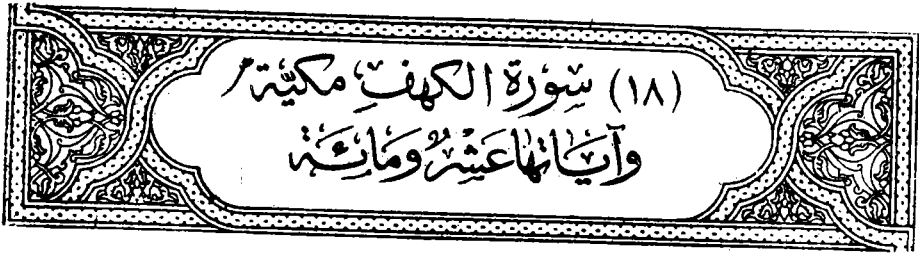 (١٨) سُورَةُ الكهفِ مكيّة
وآيَاتها عَشْرٌ وَمَائَة